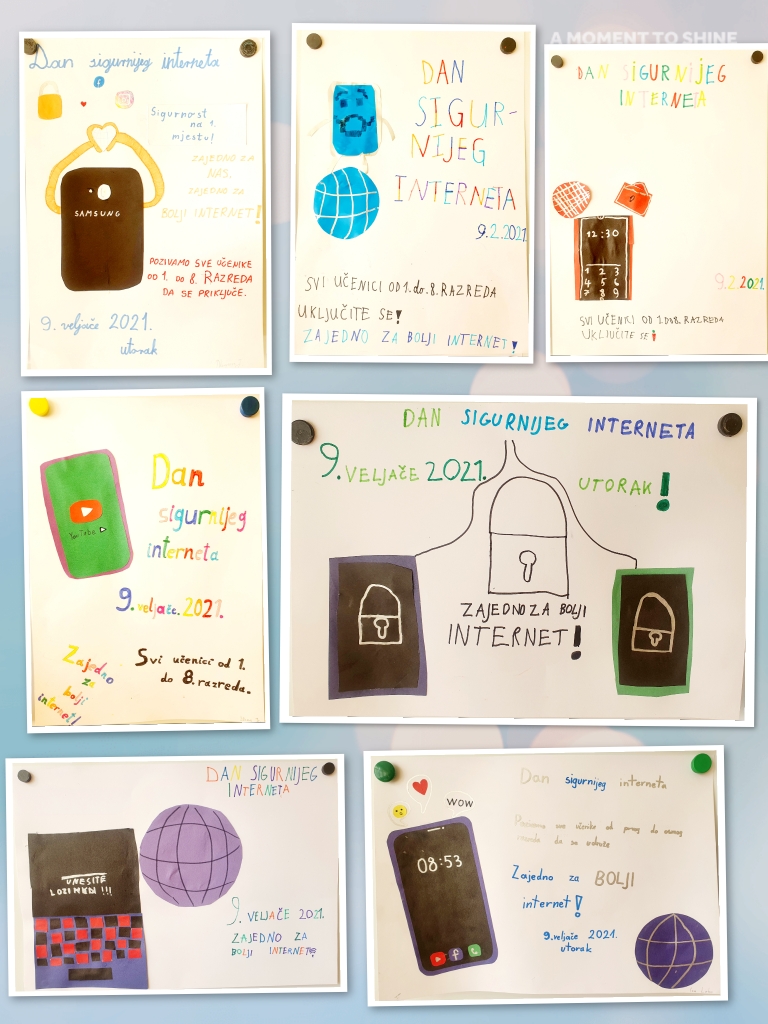 A MOMENT TO SHINE
Dan sigurnijeg interneta
Sigurnost
na 1.
mjestu!
ZAJEDNO ZA
NAS,
ZAJEDNO ZA
BOLJI INTERNET!
SAMSUNG
POZIVAMO SVE UČENIKE
OD 1. DO 8. RAZREDA
DA SE PRIKLJUČE.
9. veljače 2021.
utorak
DAN
SIGUR-
NIJEG
INTERNETA
9.2.2021.
SVI UČENICI OD 1. do 8. RAZREDA
UKLJUČITE SE!
ZAJEDNO ZA BOLJI INTERNET!
DAN SIGURNIJEG
INTERNETA
12:30
1 2 3
4 5 6
7 8 9
9.2.2021.
SVI UČENICI OD 1 DO 8. RAZREDA
UKLJUČITE SE!
YouTube
Dan
sigurnijeg
interneta
9. veljače. 2021.
Zajedno
za
bolji
internet!
Svi učenici od 1.
do 8. razreda.
DAN SIGURNIJEG INTERNETA
9. VELJAČE 2021.
UTORAK!
ZAJEDNO ZA BOLJI
INTERNET!
DAN SIGURNIJEG
INTERNETA
UNESITE
LOZINKU !!!
9. VELJAČE 2021.
ZAJEDNO ZA
BOLJI INTERNET!
WOW
08:53
Dan sigurnijeg interneta
Pozivamo sve učenike od prvog do osmog
razreda da se udruže
Zajedno za BOLJI
internet!
9. veljače 2021.
utorak